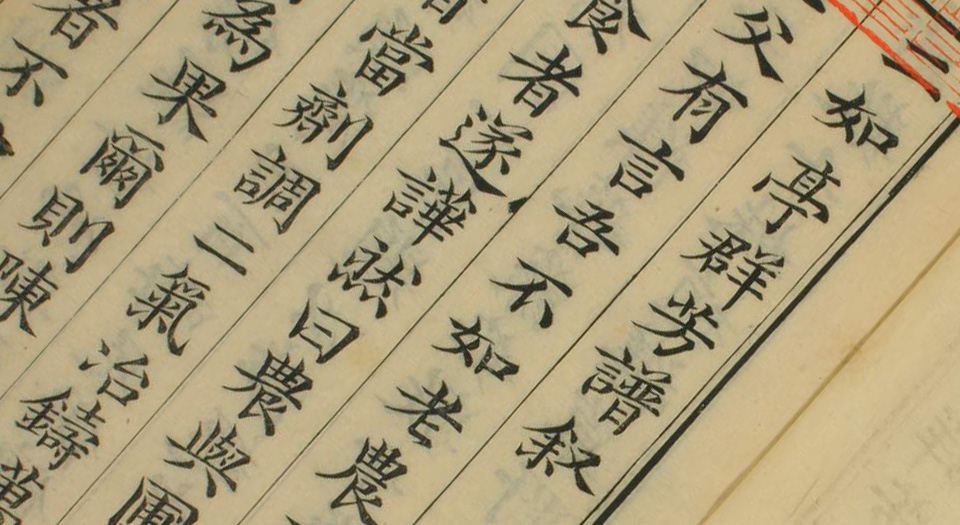 如亭群芳譜叙
父有言吾不如老農
食者遂譁然曰農與圃
當劑調二氣冶鑄萬
為果爾則陳
者不